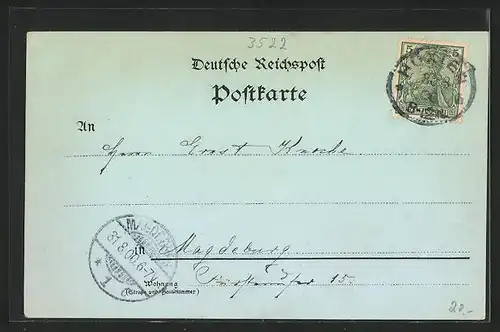 3522
Deutsche Reichspost
Postkarte
5 5
An
Herrn Ernst Knoche
MAGDEBURG
31.8.00.6-7
* 1
in Magdeburg
Wohnung
(Straße und Hausnummer)
15.
22,-